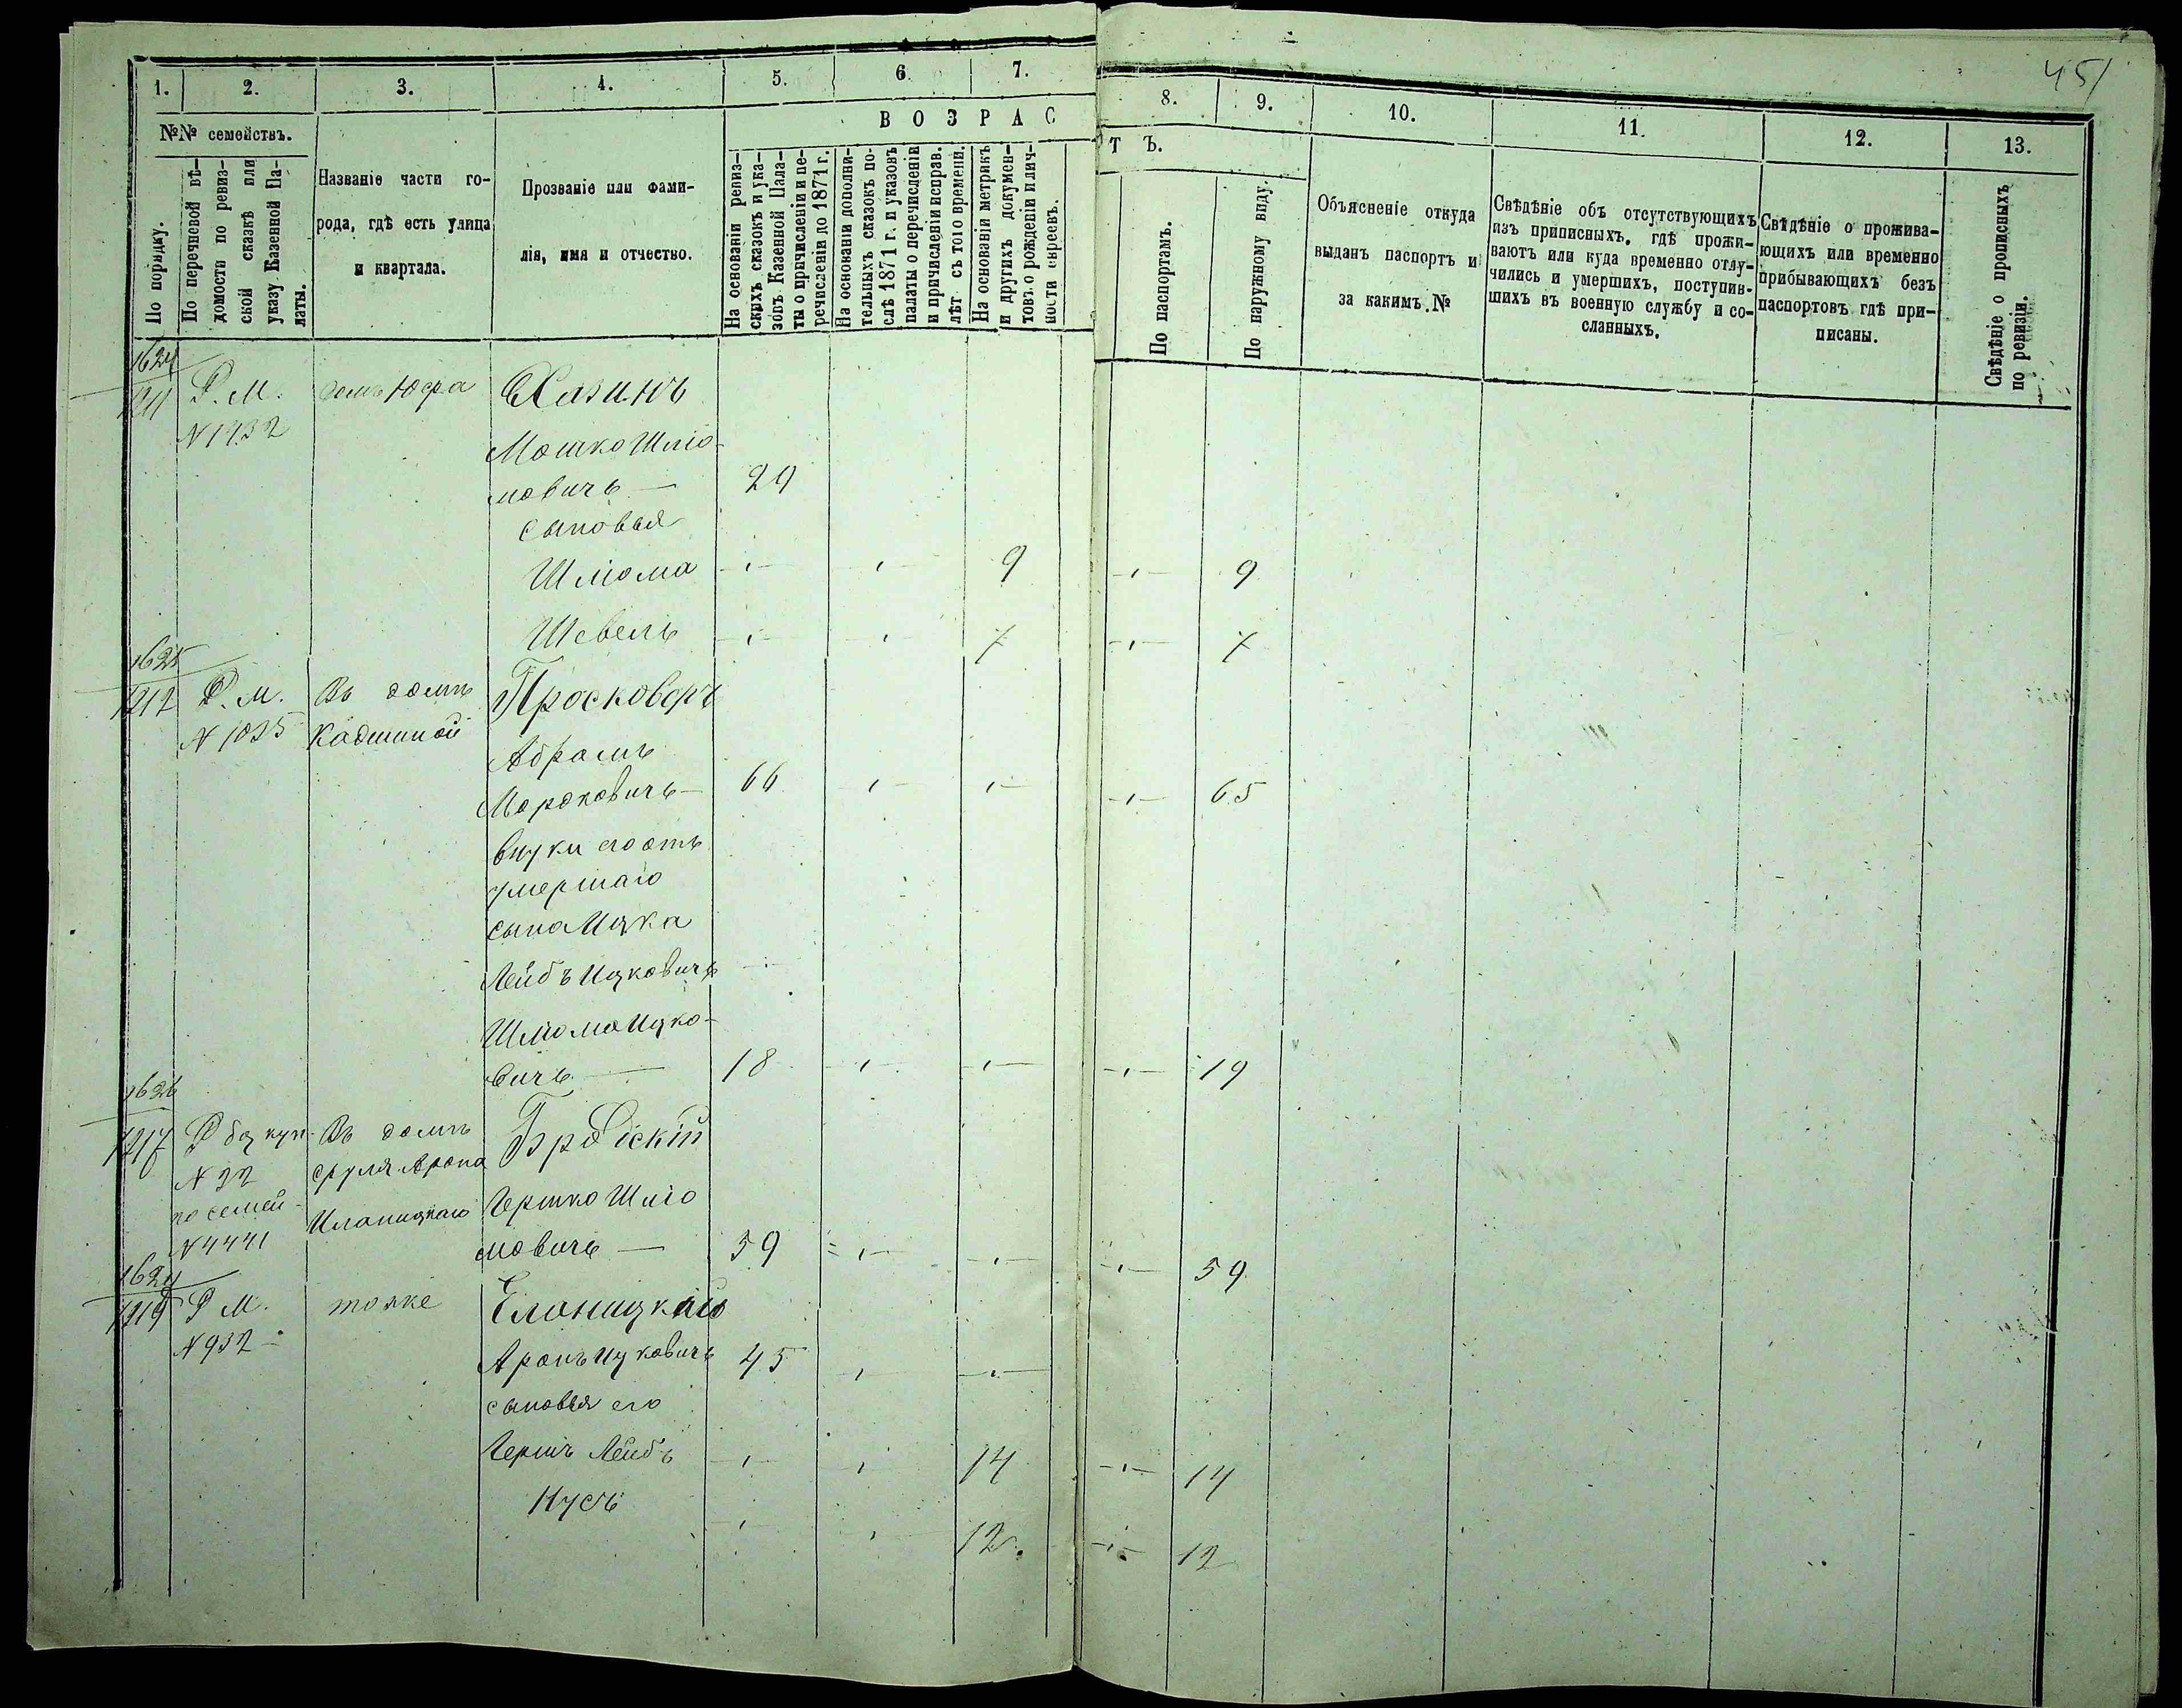 451
1. 2. 3. 4. 5. 6. 7. 8. 9. 10. 11. 12. 13.
№№ семействъ.
По порядку.
По перечневой вѣ-
домости по ревиз-
ской сказкѣ или
указу Казенной Па-
латы.
Названіе части го-
рода, гдѣ есть улица
и квартала.
Прозваніе или фами-
лія, имя и отчество.
ВОЗРАСТЪ.
На основаніи ревиз-
скихъ сказокъ и ука-
зовъ Казенной Пала-
ты о причисленіи и пе-
речисленіи до 1871 г.
На основаніи дополни-
тельныхъ сказокъ по-
слѣ 1871 г. и указовъ
палаты о перечисленіи
и причисленіи исправ.
лѣт съ того времени.
На основаніи метрикъ
и другихъ докумен-
товъ о рожденіи и лич-
ности евреевъ.
По паспортамъ.
По наружному виду.
Объясненіе откуда
выданъ паспортъ и
за какимъ №
Свѣдѣніе объ отсутствующихъ
изъ приписныхъ, гдѣ прожи-
ваютъ или куда временно отлу-
чились и умершихъ, поступив-
шихъ въ военную службу и со-
сланныхъ.
Свѣдѣніе о прожива-
ющихъ или временно
прибывающихъ безъ
паспортовъ гдѣ при-
писаны.
Свѣдѣніе о прописныхъ
по ревизіи.
1624
Р. М. домъ Юфа Хазинъ
N 1432
Мошко Шліо-
мовичъ — 29
сыновья
Шліома 9 9
Шевель 7 7
1625
1212 Р. М. Въ домѣ Просковеръ
N 1035
Абрамъ
Морковичъ — 66 65
внуки его отъ
умершаго
сына Ицка
Лейбъ Ицковичъ
Шліома Ицко-
вичъ — 18 19
1626
1217 Р бц куп. Въ домѣ Бродскій
N 22 Сруля Арона
по семей-
N 4441
Гершко Шліо
мовичъ — 59 59
1627
1219 Р М. тоже Еланицкаго
N 932
Аронъ Ицковичъ 45
сыновья его
Гершъ Лейбъ 14 14
Нусъ 12 12